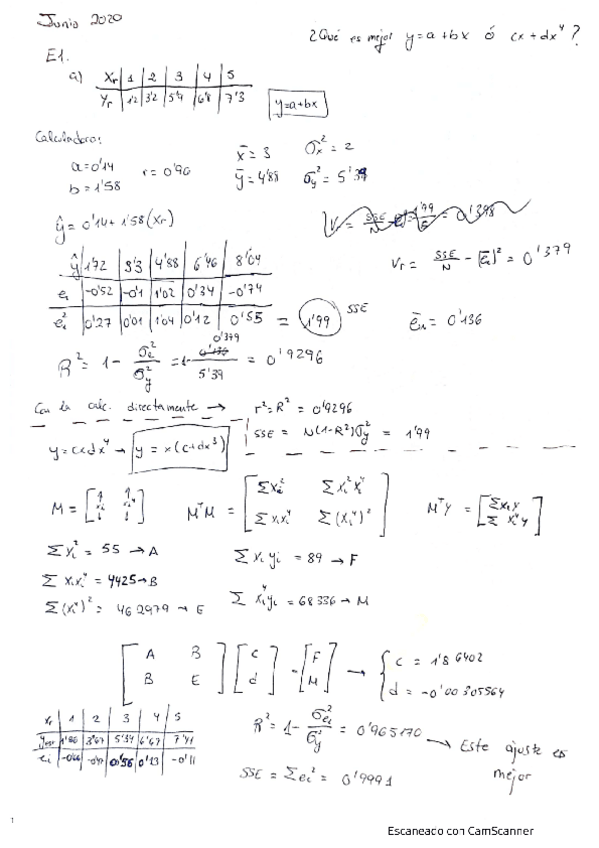 Junio 2020
¿Qué es mejor y=a+bx ó cx+dx⁴?
E1.
a) Xr | 1 | 2 | 3 | 4 | 5
Yr | 1'2 | 3'2 | 5'9 | 6'8 | 7'3
y=a+bx
Calculadora:
a=0'14 r=0'96 x̄=3 σx²=2
b=1'58 ȳ=4'88 σy²=5'39
ŷ=0'14+1'58(xr)
Vr= SSE/N = 1'99/5 = 0'398
ŷ | 1'72 | 3'3 | 4'88 | 6'46 | 8'04
ei | -0'52 | -0'1 | 1'02 | 0'34 | -0'74
ei² | 0'27 | 0'01 | 1'04 | 0'12 | 0'55 = 1'99 SSE
Vr= SSE/N - (ēi)² = 0'379
ēn=0'136
R²=1- σe²/σy² = 1- 0'379/5'39 = 0'9296
Con la calc. directamente → r²=R²=0'9296
SSE = N(1-R²)σy² = 1'99
y=cx+dx⁴ → y=x(c+dx³)
M=[↑ ↑; xi xi⁴; ↓ ↓] MᵀM=[Σxi² Σxi²xi⁴; Σxixi⁴ Σ(xi⁴)²] MᵀY=[Σxiy; Σxi⁴y]
Σxi² = 55 → A Σxiyi = 89 → F
Σxixi⁴ = 4425 → B
Σ(xi⁴)² = 462979 → E Σxi⁴yi = 68336 → M
[A B; B E] [c; d] = [F; M] → { c = 1'86402
d = -0'00305564
xr | 1 | 2 | 3 | 4 | 5
yest | 1'86 | 3'67 | 5'34 | 6'67 | 7'41
ei | -0'66 | -0'47 | 0'56 | 0'13 | -0'11
R²=1- σei²/σy² = 0'965170 → Este ajuste es
mejor
SSE = Σei² = 0'9991
1
Escaneado con CamScanner